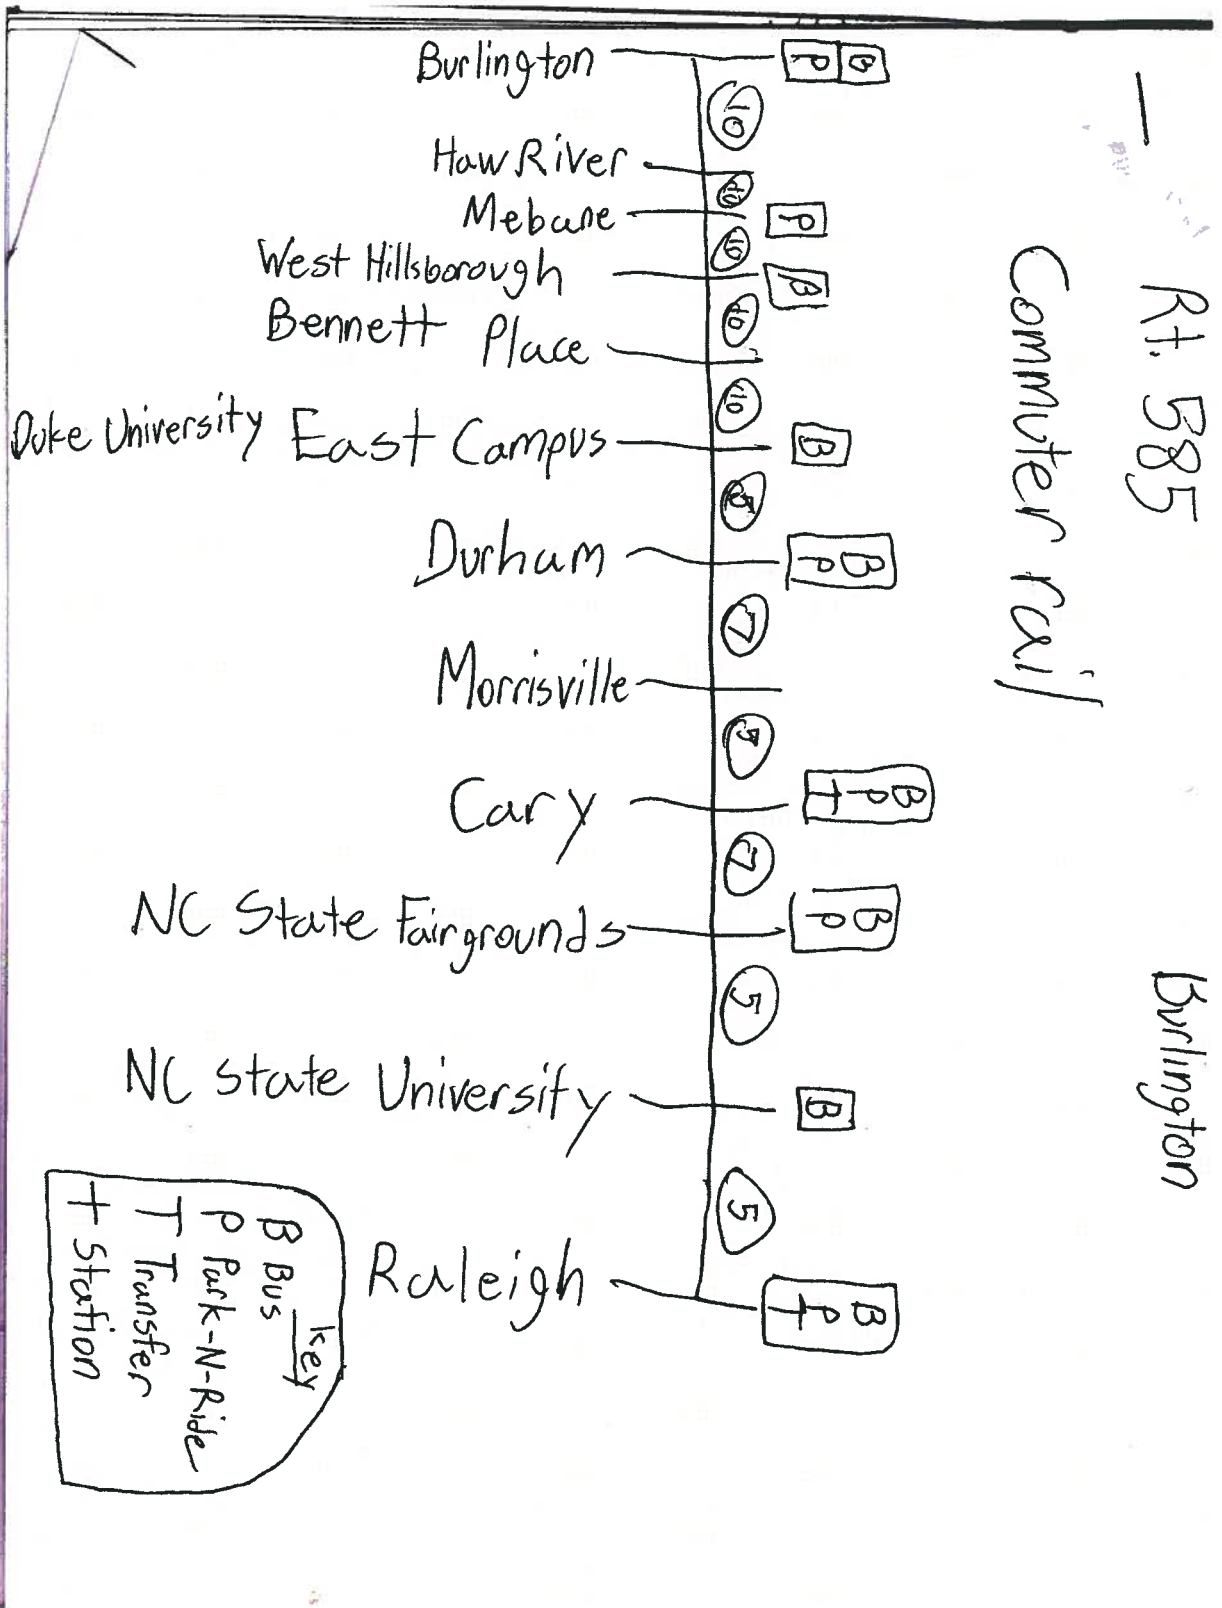 Rt. 585
Burlington
Commuter rail
Burlington
P B
10
Haw River
10
Mebane
P
10
West Hillsborough
B
10
Bennett Place
10
Duke University East Campus
B
5
Durham
B
P
7
Morrisville
Cary
B
P
T
7
NC State Fairgrounds
B
P
5
NC State University
B
5
Raleigh
B
P
T
key
B Bus
P Park-N-Ride
T Transfer
+ Station